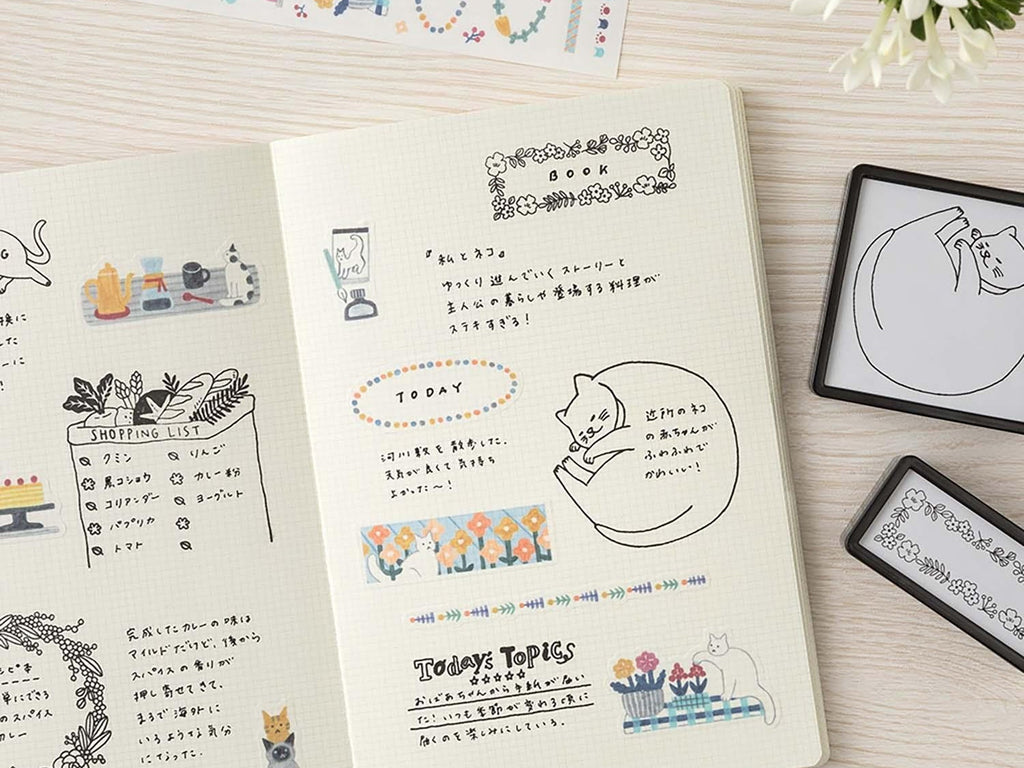 G
換に
した
ーに
!
SHOPPING LIST
クミン
黒コショウ
コリアンダー
パプリカ
トマト
りんご
カレー粉
ヨーグルト
シピ本
単にできる
のスパイス
カレー
完成したカレーの味は
マイルドだけど、後から
スパイスの香りが
押し寄せてきて、
まるで海外に
いるような気分
になった。
BOOK
『私とネコ』
ゆっくり進んでいくストーリーと
主人公の暮らしや登場する料理が
ステキすぎる!
TODAY
河川敷を散歩した。
天気が良くて気持ち
よかった〜!
近所のネコ
の赤ちゃんが
ふわふわで
かわいい!
Today's Topics
おばあちゃんから手紙が届い
た!いつも季節が変わる頃に
届くのを楽しみにしている。